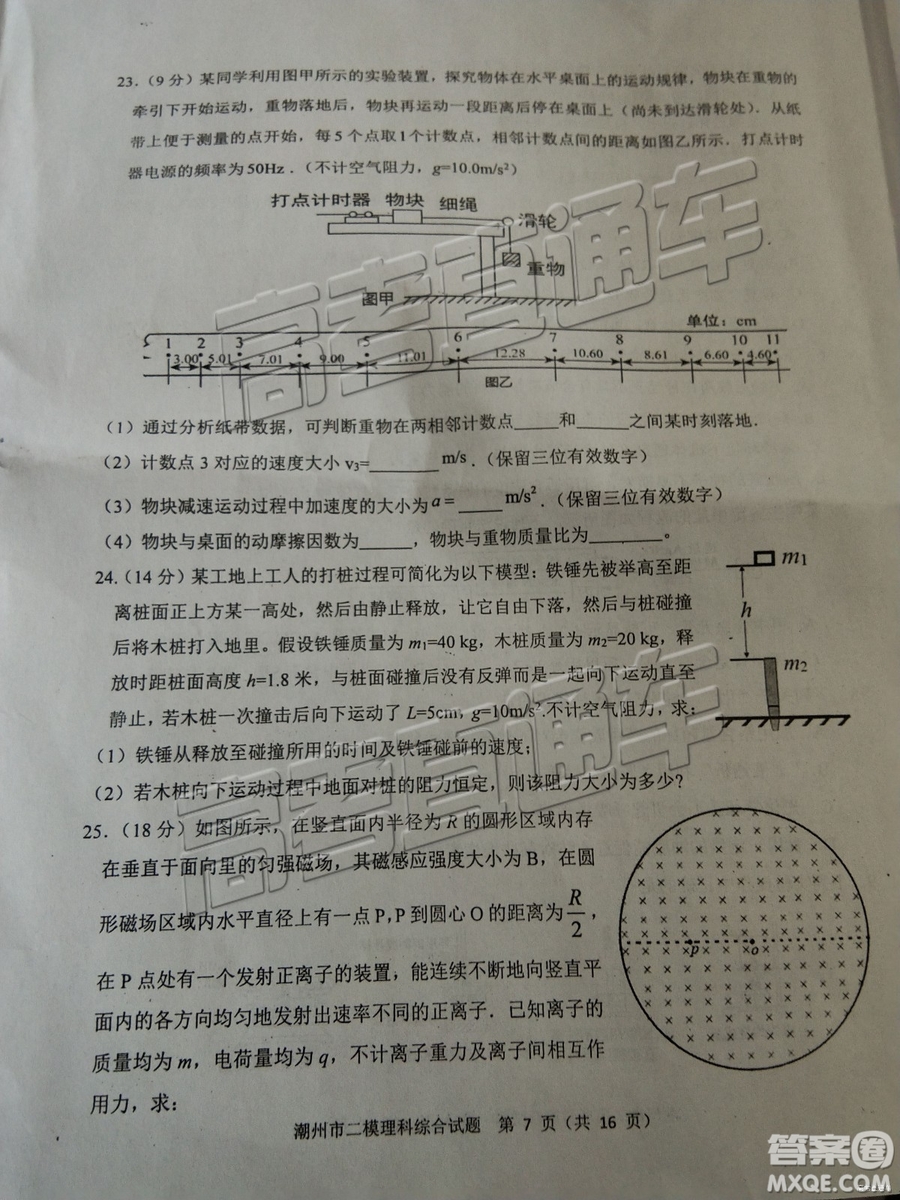 23.（9 分）某同学利用图甲所示的实验装置，探究物体在水平桌面上的运动规律，物块在重物的
牵引下开始运动，重物落地后，物块再运动一段距离后停在桌面上（尚未到达滑轮处）. 从纸
带上便于测量的点开始，每 5 个点取 1 个计数点，相邻计数点间的距离如图乙所示．打点计时
器电源的频率为 50Hz .（不计空气阻力，g=10.0m/s²）
打点计时器 物块 细绳
滑轮
重物
图甲
单位：cm
1 2 3 4 5 6 7 8 9 10 11
3.00 5.01 7.01 9.00 11.01 12.28 10.60 8.61 6.60 4.60
图乙
（1）通过分析纸带数据，可判断重物在两相邻计数点_____和______之间某时刻落地.
（2）计数点 3 对应的速度大小 v₃=________ m/s .（保留三位有效数字）
（3）物块减速运动过程中加速度的大小为 a = _____ m/s² .（保留三位有效数字）
（4）物块与桌面的动摩擦因数为______，物块与重物质量比为________。
24.（14 分）某工地上工人的打桩过程可简化为以下模型：铁锤先被举高至距
离桩面正上方某一高处，然后由静止释放，让它自由下落，然后与桩碰撞
后将木桩打入地里。假设铁锤质量为 m₁=40 kg，木桩质量为 m₂=20 kg，释
放时距桩面高度 h=1.8 米，与桩面碰撞后没有反弹而是一起向下运动直至
静止，若木桩一次撞击后向下运动了 L=5cm，g=10m/s².不计空气阻力，求：
（1）铁锤从释放至碰撞所用的时间及铁锤碰前的速度；
（2）若木桩向下运动过程中地面对桩的阻力恒定，则该阻力大小为多少?
m₁
h
m₂
25.（18 分）如图所示，在竖直面内半径为 R 的圆形区域内存
在垂直于面向里的匀强磁场，其磁感应强度大小为 B，在圆
形磁场区域内水平直径上有一点 P，P 到圆心 O 的距离为 R/2，
在 P 点处有一个发射正离子的装置，能连续不断地向竖直平
面内的各方向均匀地发射出速率不同的正离子．已知离子的
质量均为 m，电荷量均为 q，不计离子重力及离子间相互作
用力，求：
p o
潮州市二模理科综合试题 第 7 页（共 16 页）
高考直通车
高考直通车
答案圈
MXQE.COM